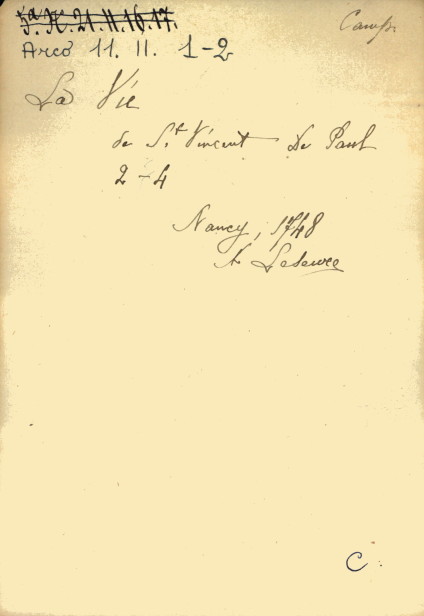 5ª. K. 21. 11. 16. 17.
Arco 11. II. 1-2
La Vie
de St Vincent De Paul
2-4
Nancy, 1748
C.